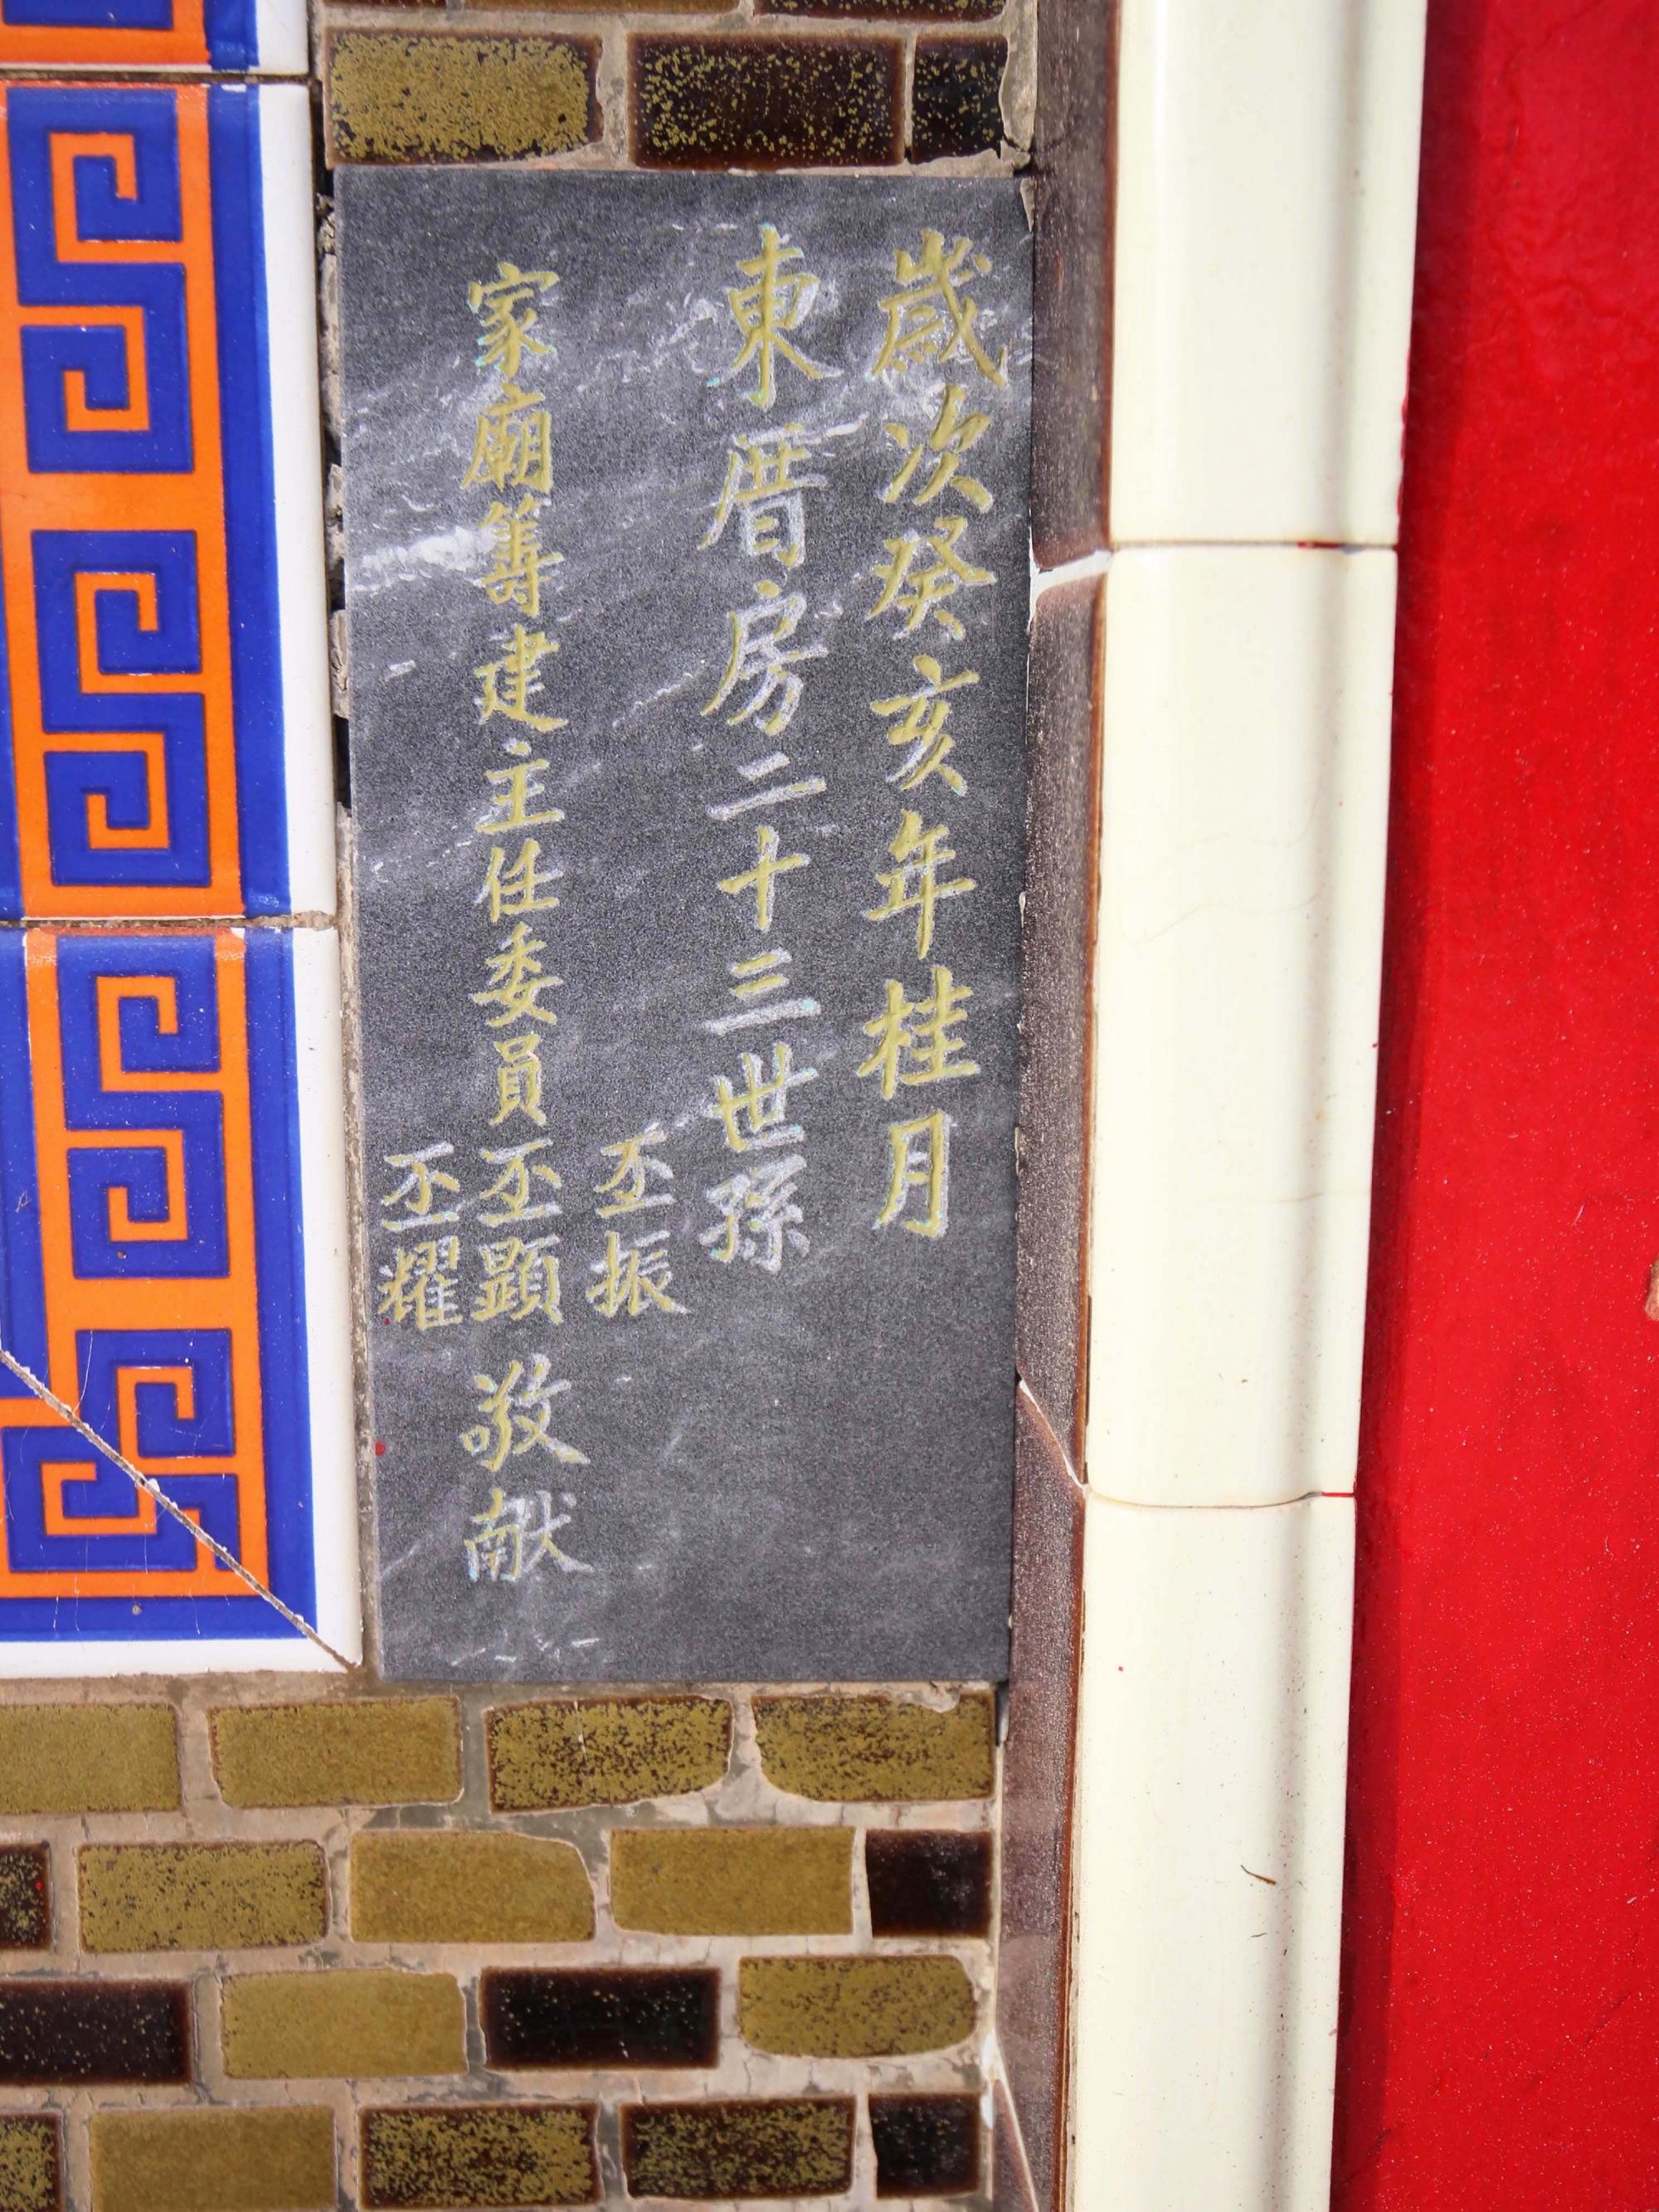 歲次癸亥年桂月
東厝房二十三世孫
丕振
家廟籌建主任委員丕顯敬獻
丕耀